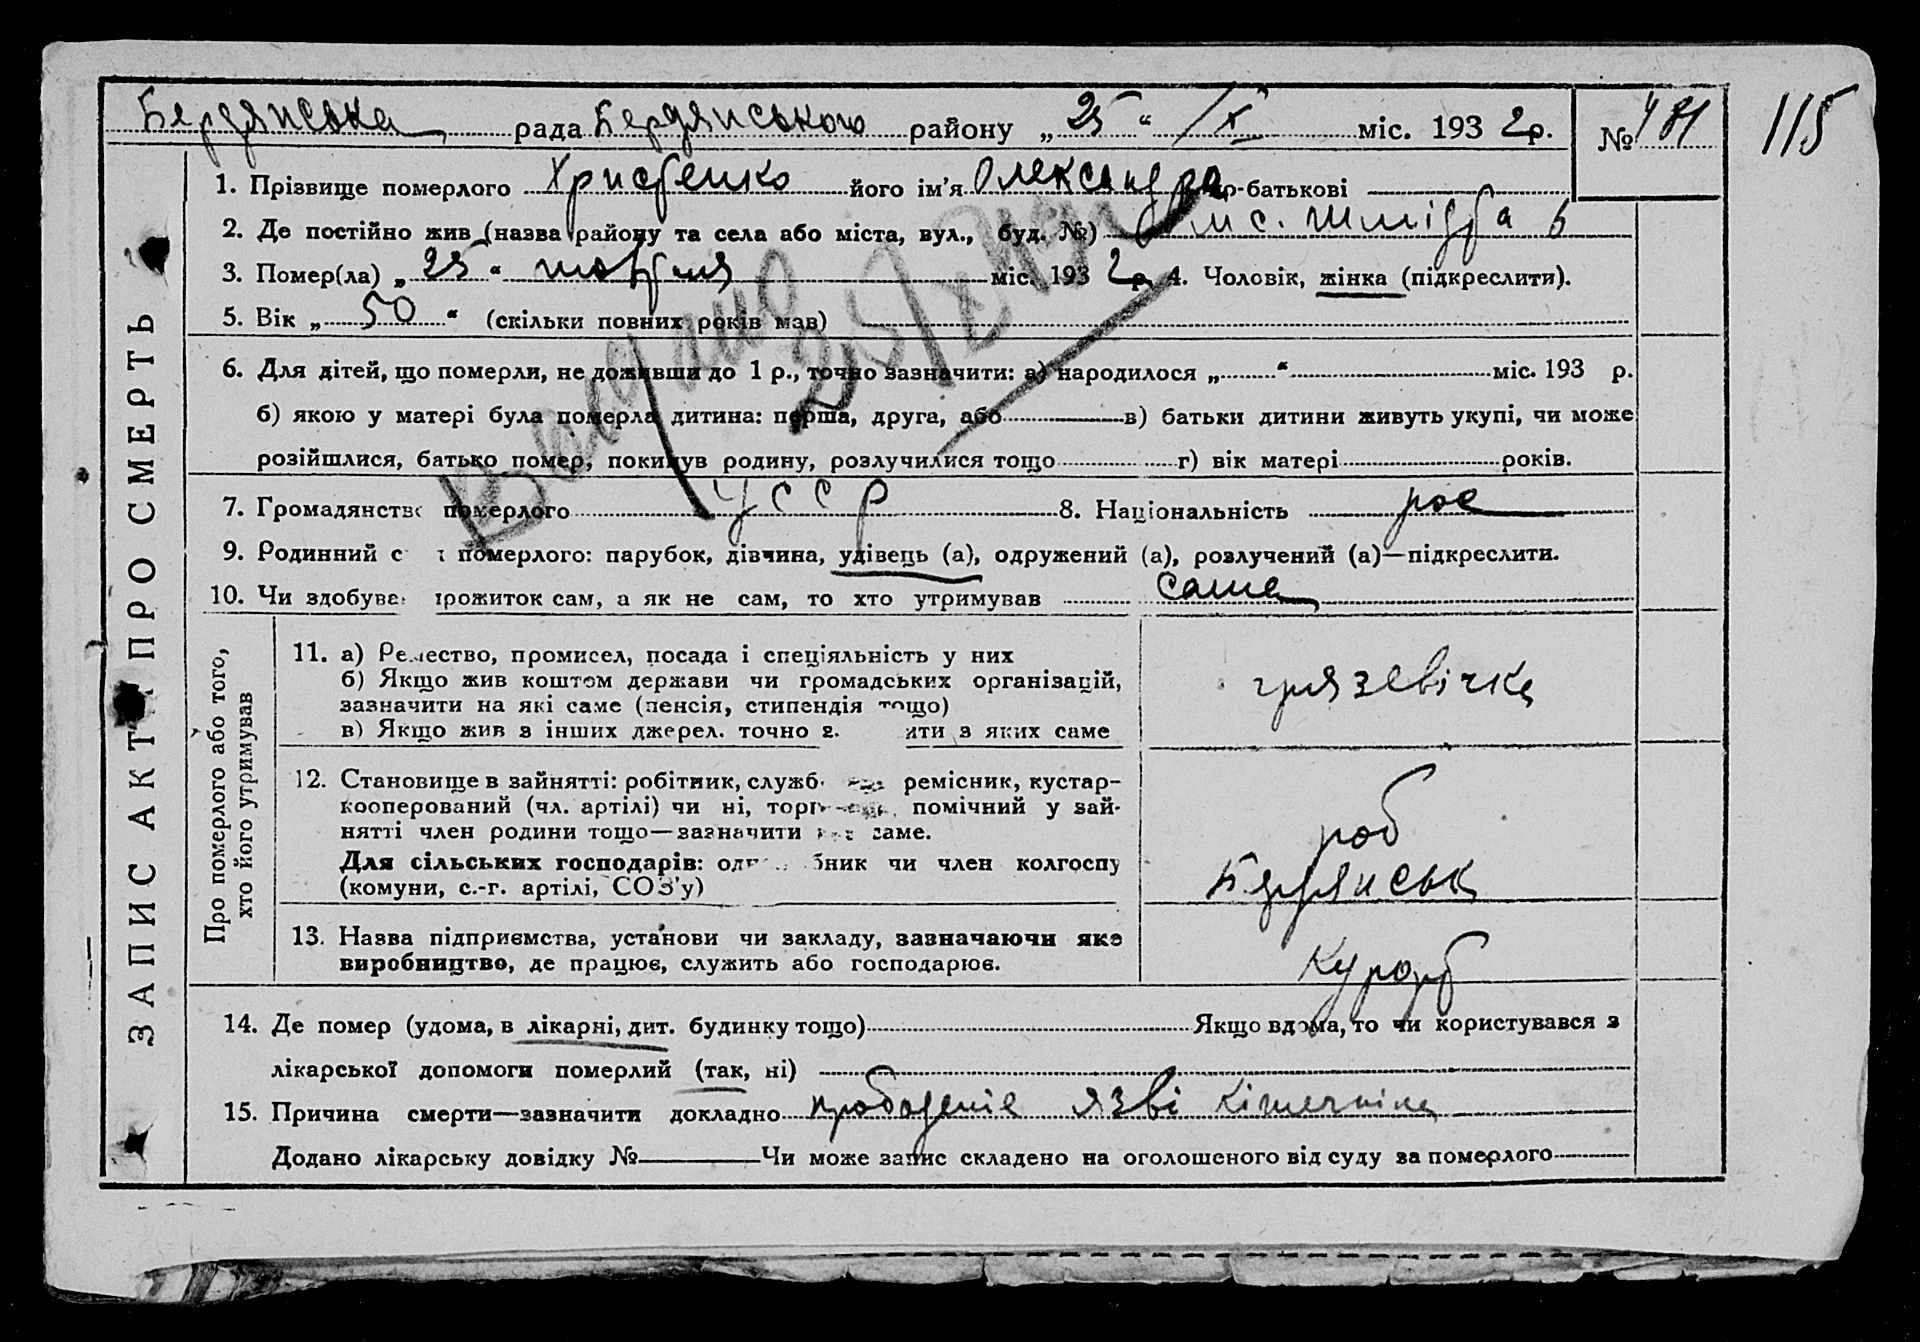 Бердянська рада Бердянського району „ 25 “ /X міс. 193 2р. № 481 115
1. Прізвище померлого Христенко його ім’я Олександра по-батькові
2. Де постійно жив (назва району та села або міста, вул., буд. №) м с. Шмідта 6
3. Помер(ла) „ 25 “ жовтня міс. 193 2р. 4. Чоловік, жінка (підкреслити).
5. Вік „ 50 “ (скільки повних років мав)
6. Для дітей, що померли, не доживши до 1 р., точно зазначити: а) народилося „ “ міс. 193 р.
б) якою у матері була померла дитина: перша, друга, або в) батьки дитини живуть укупі, чи може
розійшлися, батько помер, покинув родину, розлучилися тощо г) вік матері років.
7. Громадянство померлого УССР 8. Національність рос
9. Родинний с померлого: парубок, дівчина, удівець (а), одружений (а), розлучений (а)—підкреслити.
10. Чи здобував прожиток сам, а як не сам, то хто утримував сама
ЗАПИС АКТА ПРО СМЕРТЬ
Про померлого або того, хто його утримував
11. а) Ремество, промисел, посада і спеціяльність у них
б) Якщо жив коштом держави чи громадських організацій,
зазначити на які саме (пенсія, стипендія тощо)
в) Якщо жив з інших джерел. точно з ити з яких саме
грязевічка
12. Становище в зайнятті: робітник, служб ремісник, кустар-
кооперований (чл. артілі) чи ні, торг помічний у зай-
нятті член родини тощо—зазначити саме.
Для сільських господарів: од бник чи член колгоспу
(комуни, с.-г. артілі, СОЗ’у)
роб
Бердянськ
13. Назва підприємства, установи чи закладу, зазначаючи яке
виробництво, де працює, служить або господарює.
Курорт
14. Де помер (удома, в лікарні, дит. будинку тощо) Якщо вдома, то чи користувався з
лікарської допомоги померлий (так, ні)
15. Причина смерти—зазначити докладно прободеніе язві кішечніка
Додано лікарську довідку № Чи може запис складено на оголошеного від суду за померлого